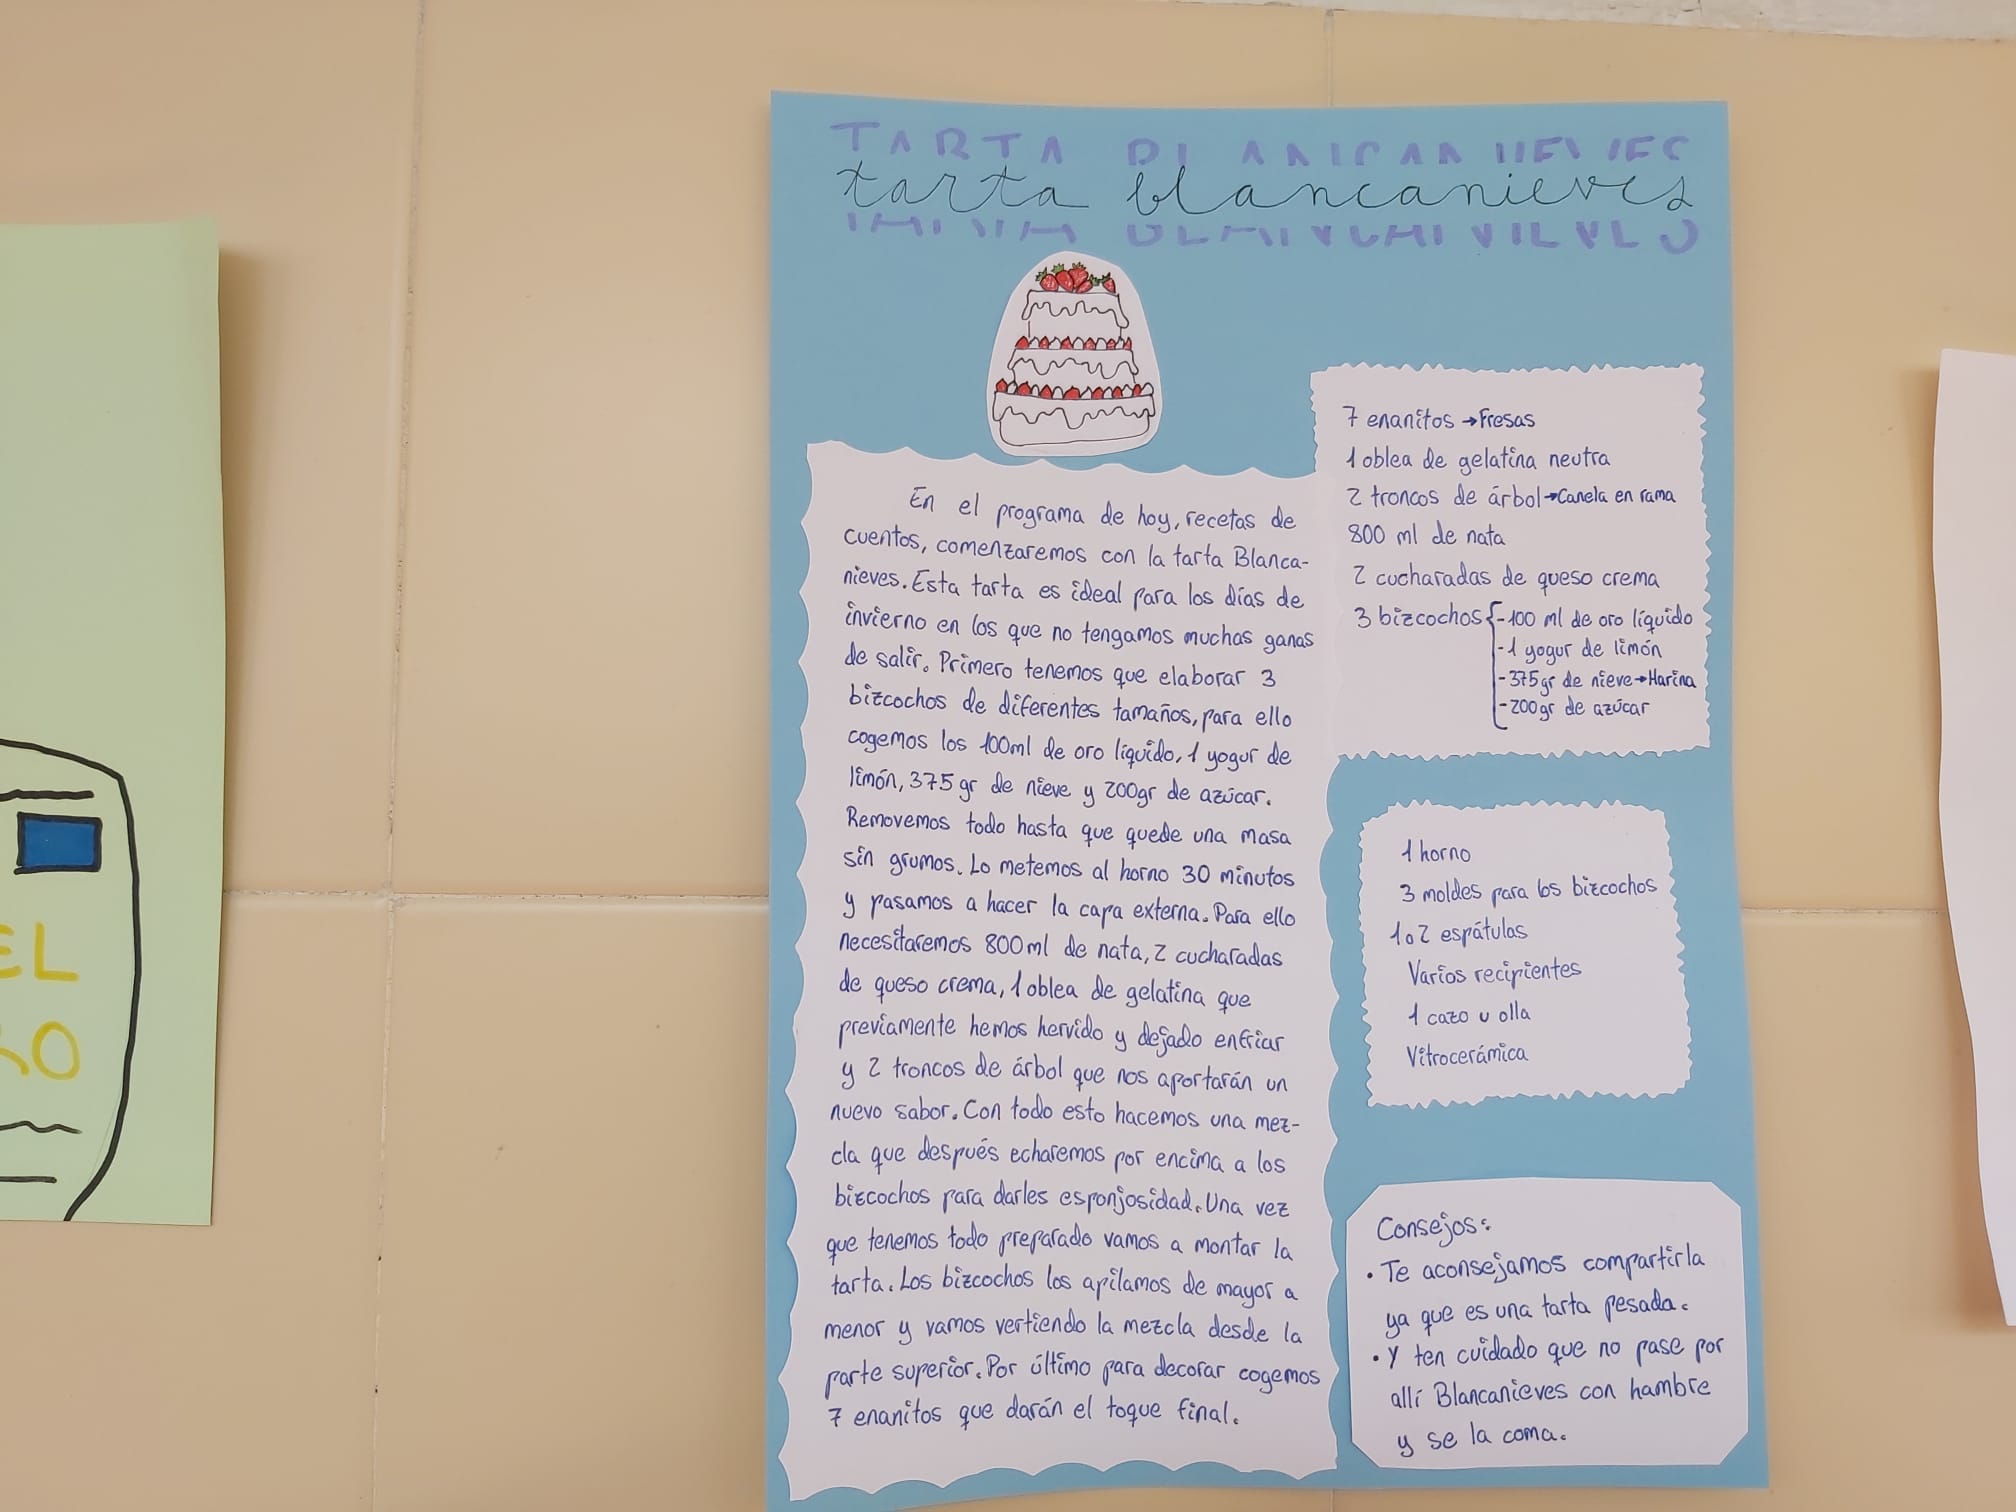 TARTA BLANCANIEVES
tarta blancanieves
En el programa de hoy, recetas de
cuentos, comenzaremos con la tarta Blanca-
nieves. Esta tarta es ideal para los días de
invierno en los que no tengamos muchas ganas
de salir. Primero tenemos que elaborar 3
bizcochos de diferentes tamaños, para ello
cogemos los 100ml de oro líquido, 1 yogur de
limón, 375 gr de nieve y 200gr de azúcar.
Removemos todo hasta que quede una masa
sin grumos. Lo metemos al horno 30 minutos
y pasamos a hacer la capa externa. Para ello
necesitaremos 800ml de nata, 2 cucharadas
de queso crema, 1 oblea de gelatina que
previamente hemos hervido y dejado enfriar
y 2 troncos de árbol que nos aportarán un
nuevo sabor. Con todo esto hacemos una mez-
cla que después echaremos por encima a los
bizcochos para darles esponjosidad. Una vez
que tenemos todo preparado vamos a montar la
tarta. Los bizcochos los apilamos de mayor a
menor y vamos vertiendo la mezcla desde la
parte superior. Por último para decorar cogemos
7 enanitos que darán el toque final.
7 enanitos → Fresas
1 oblea de gelatina neutra
2 troncos de árbol → Canela en rama
800 ml de nata
2 cucharadas de queso crema
3 bizcochos { - 100 ml de oro líquido
- 1 yogur de limón
- 375 gr de nieve → Harina
- 200gr de azúcar
1 horno
3 moldes para los bizcochos
1 o 2 espátulas
Varios recipientes
1 cazo u olla
Vitrocerámica
Consejos:
• Te aconsejamos compartirla
ya que es una tarta pesada.
• Y ten cuidado que no pase por
allí Blancanieves con hambre
y se la coma.
EL